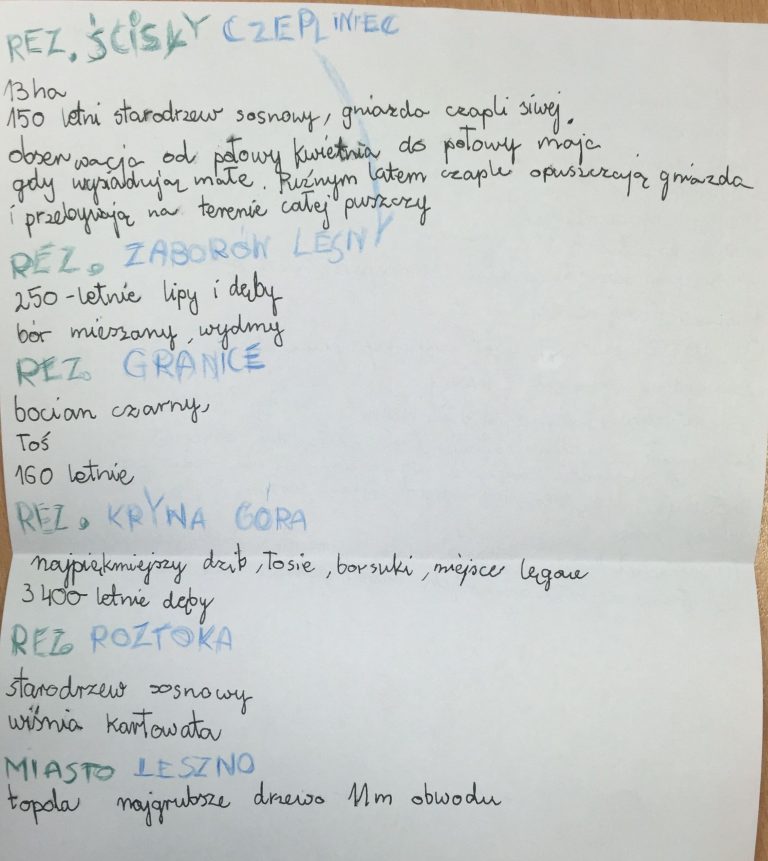 REZ. ŚCISŁY CZEPLINIEC
13 ha
150 letni starodrzew sosnowy, gniazda czapli siwej.
obserwacja od połowy kwietnia do połowy maja
gdy wysiadują małe. Późnym latem czaple opuszczają gniazda
i przebywają na terenie całej puszczy
REZ. ZABORÓW LEŚNY
250-letnie lipy i dęby
bór mieszany, wydmy
REZ. GRANICE
bocian czarny,
łoś
160 letnie
REZ. KRYNA GÓRA
najpiękniejszy dzib, łosie, borsuki, miejsce lęgowe
3 400 letnie dęby
REZ. ROZTOKA
starodrzew sosnowy
wiśnia karłowata
MIASTO LESZNO
topola najgrubsze drzewo 11m obwodu